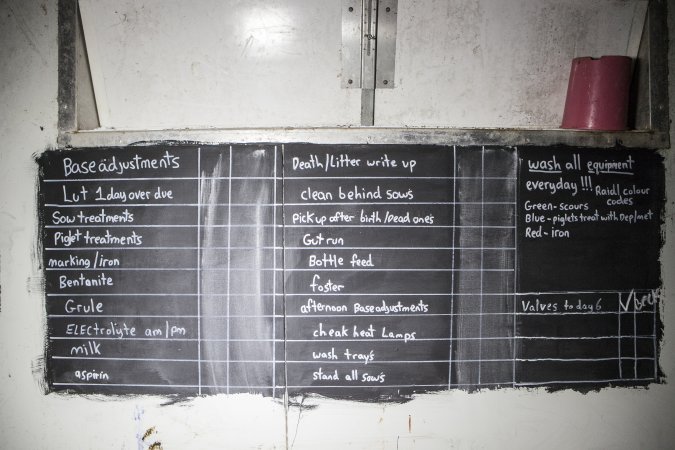 Base adjustments
Lut 1 day over due
Sow treatments
Piglet treatments
marking/iron
Bentonite
Grule
Electrolyte am/pm
milk
aspirin
Death/Litter write up
clean behind sows
Pick up after birth/Dead ones
Gut run
Bottle feed
foster
afternoon Base adjustments
cheak heat Lamps
wash trays
stand all sows
wash all equipment
everyday !!!
Raidl colour
codes
Green - scours
Blue - piglets treat with Dep/met
Red - iron
Valves to day 6 ✓